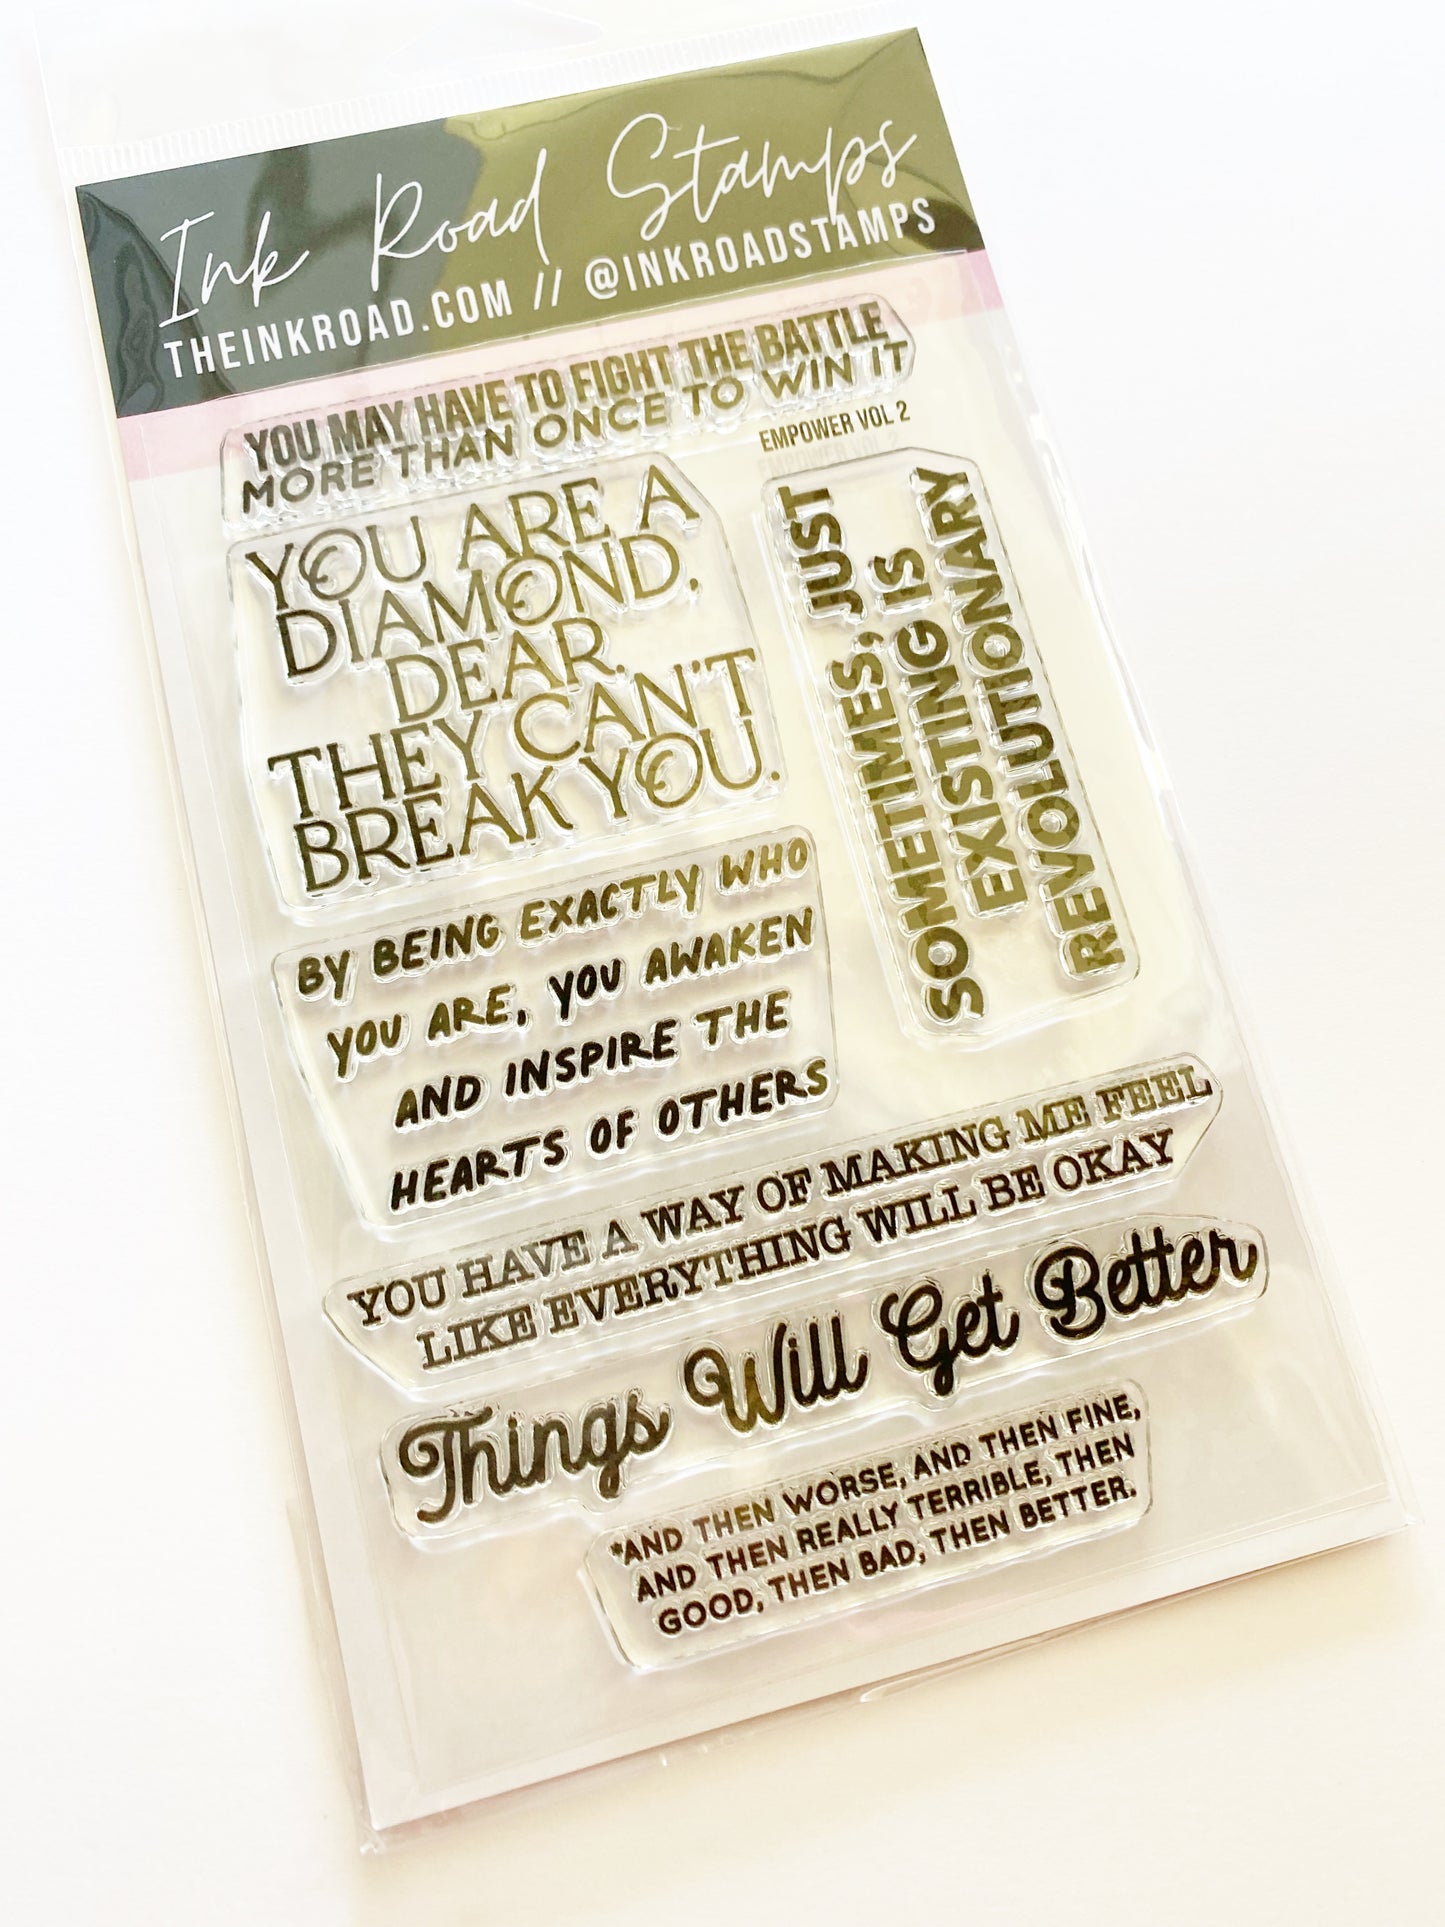 Ink Road Stamps
THEINKROAD.COM // @INKROADSTAMPS
YOU MAY HAVE TO FIGHT THE BATTLE
MORE THAN ONCE TO WIN IT
EMPOWER VOL 2
YOU ARE A
DIAMOND,
DEAR.
THEY CAN'T
BREAK YOU.
SOMETIMES, JUST
EXISTING IS
REVOLUTIONARY
BY BEING EXACTLY WHO
YOU ARE, YOU AWAKEN
AND INSPIRE THE
HEARTS OF OTHERS
YOU HAVE A WAY OF MAKING ME FEEL
LIKE EVERYTHING WILL BE OKAY
Things Will Get Better
*AND THEN WORSE, AND THEN FINE,
AND THEN REALLY TERRIBLE, THEN
GOOD, THEN BAD, THEN BETTER.